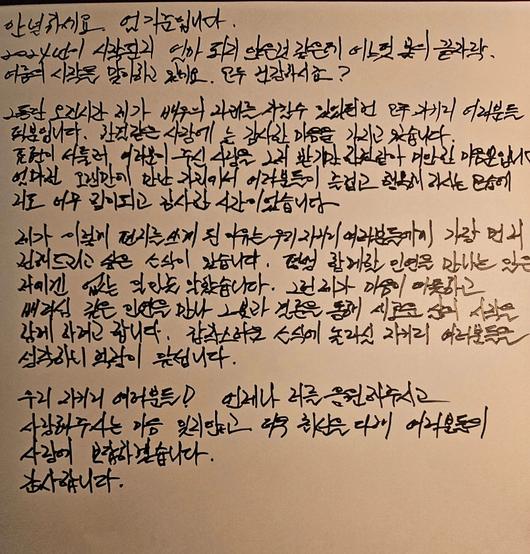 안녕하세요. 엄기준입니다.
2024년이 시작된지 얼마 되지 않은것 같은데 어느덧 봄의 끝자락.
여름의 시작을 맞이하고 있네요. 모두 건강하시죠?
그동안 오랜시간 제가 배우의 자리를 지킬수 있었던건 모두 자기리 여러분들
덕분입니다. 한결같은 사랑에 늘 감사한 마음을 가지고 있습니다.
표현이 서툴러, 여러분이 주신 사랑을 그저 받기만 한것같아 미안한 마음뿐입니다
얼마전 오랜만에 만난 자리에서 여러분들이 즐겁고 행복해 하시는 모습에
저도 너무 힘이되고 감사한 시간이었습니다
제가 이렇게 편지를 쓰게 된 이유는 우리 자기리 여러분들에게 가장 먼저
전해드리고 싶은 소식이 있습니다. 평생 함께할 인연을 만나는 일은
저에겐 없는 일인줄 알았습니다. 그런 제가 마음이 따뜻하고
배려심 깊은 인연을 만나 그분과 결혼을 통해 새로운 삶의 시작을
함께 하려고 합니다. 갑작스러운 소식에 놀라실 자기리 여러분들을
생각하니 걱정이 듭니다.
우리 자기리 여러분들! 언제나 저를 응원해주시고
사랑해주시는 마음 잊지않고 더욱 최선을 다해 여러분들의
사랑에 보답하겠습니다.
감사합니다.